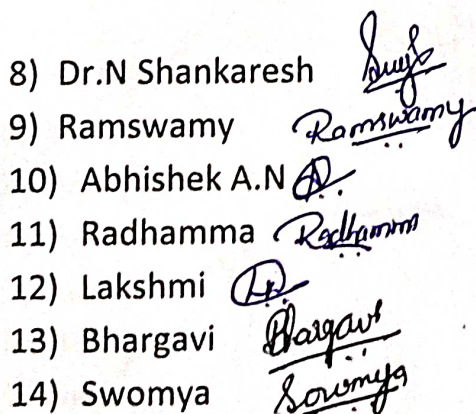 8) Dr.N Shankaresh
9) Ramswamy Ramswamy
10) Abhishek A.N
11) Radhamma Radhamm
12) Lakshmi
13) Bhargavi Bhargavi
14) Swomya Sowmya